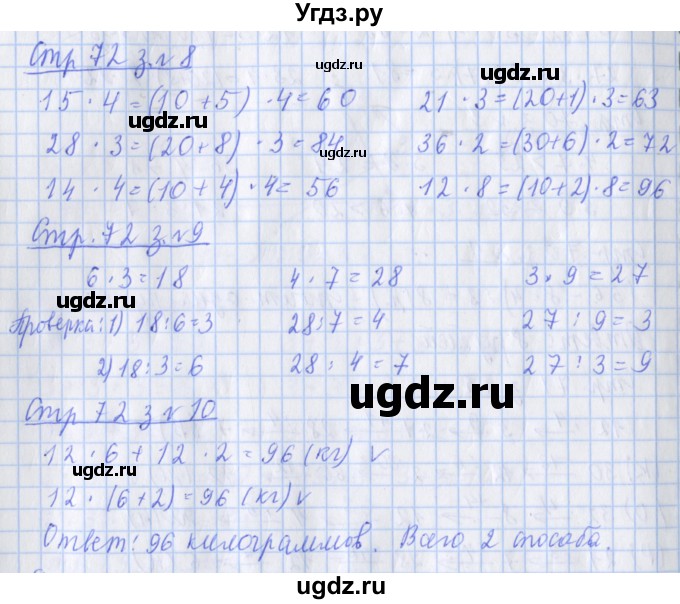 Угдз.ру
Стр 72 з. №8
ugdz.ru
15 · 4 = (10 + 5) · 4 = 60 21 · 3 = (20+1) · 3 = 63
ugdz.ru ugdz.ru
28 · 3 = (20+8) · 3 = 84 36 · 2 = (30+6) · 2 = 72
ugdz.ru
14 · 4 = (10 + 4) · 4 = 56 12 · 8 = (10+2) · 8 = 96
ugdz.ru
Стр. 72 з. №9
6 · 3 = 18 4 · 7 = 28 3 · 9 = 27
ugdz.ru ugdz.ru
Проверка: 1) 18 : 6 = 3 28 : 7 = 4 27 : 9 = 3
2) 18 : 3 = 6 28 : 4 = 7 27 : 3 = 9
ugdz.ru
Стр 72 з №10
12 · 6 + 12 · 2 = 96 (кг) v
ugdz.ru
12 · (6 + 2) = 96 (кг) v
Ответ: 96 килограммов. Всего 2 способа.
ugdz.ru ugdz.ru
ugdz.ru